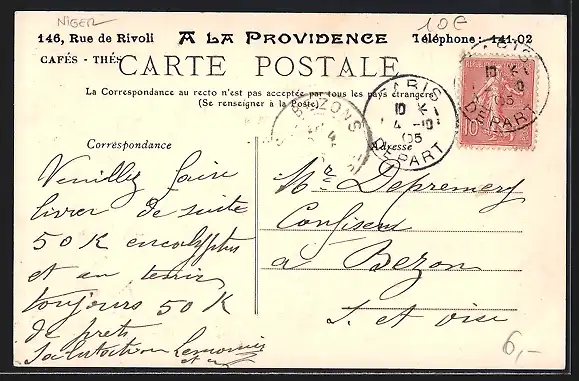 NIGER
10€
146, Rue de Rivoli A LA PROVIDENCE Téléphone: 141-02
CAFÉS - THÉS
CARTE POSTALE
La Correspondance au recto n'est pas acceptée par tous les pays étrangers
(Se renseigner à la Poste)
Correspondance
Adresse
PARIS
DEPART
BEZONS
PARIS
DEPART
10
Veuillez faire
livrer de suite
50 K eucalyptus
et en tenir
toujours 50 K
de prets
Salutations
Mr Depremery
Confiseur
à Bezon
S. et Oise
6,-